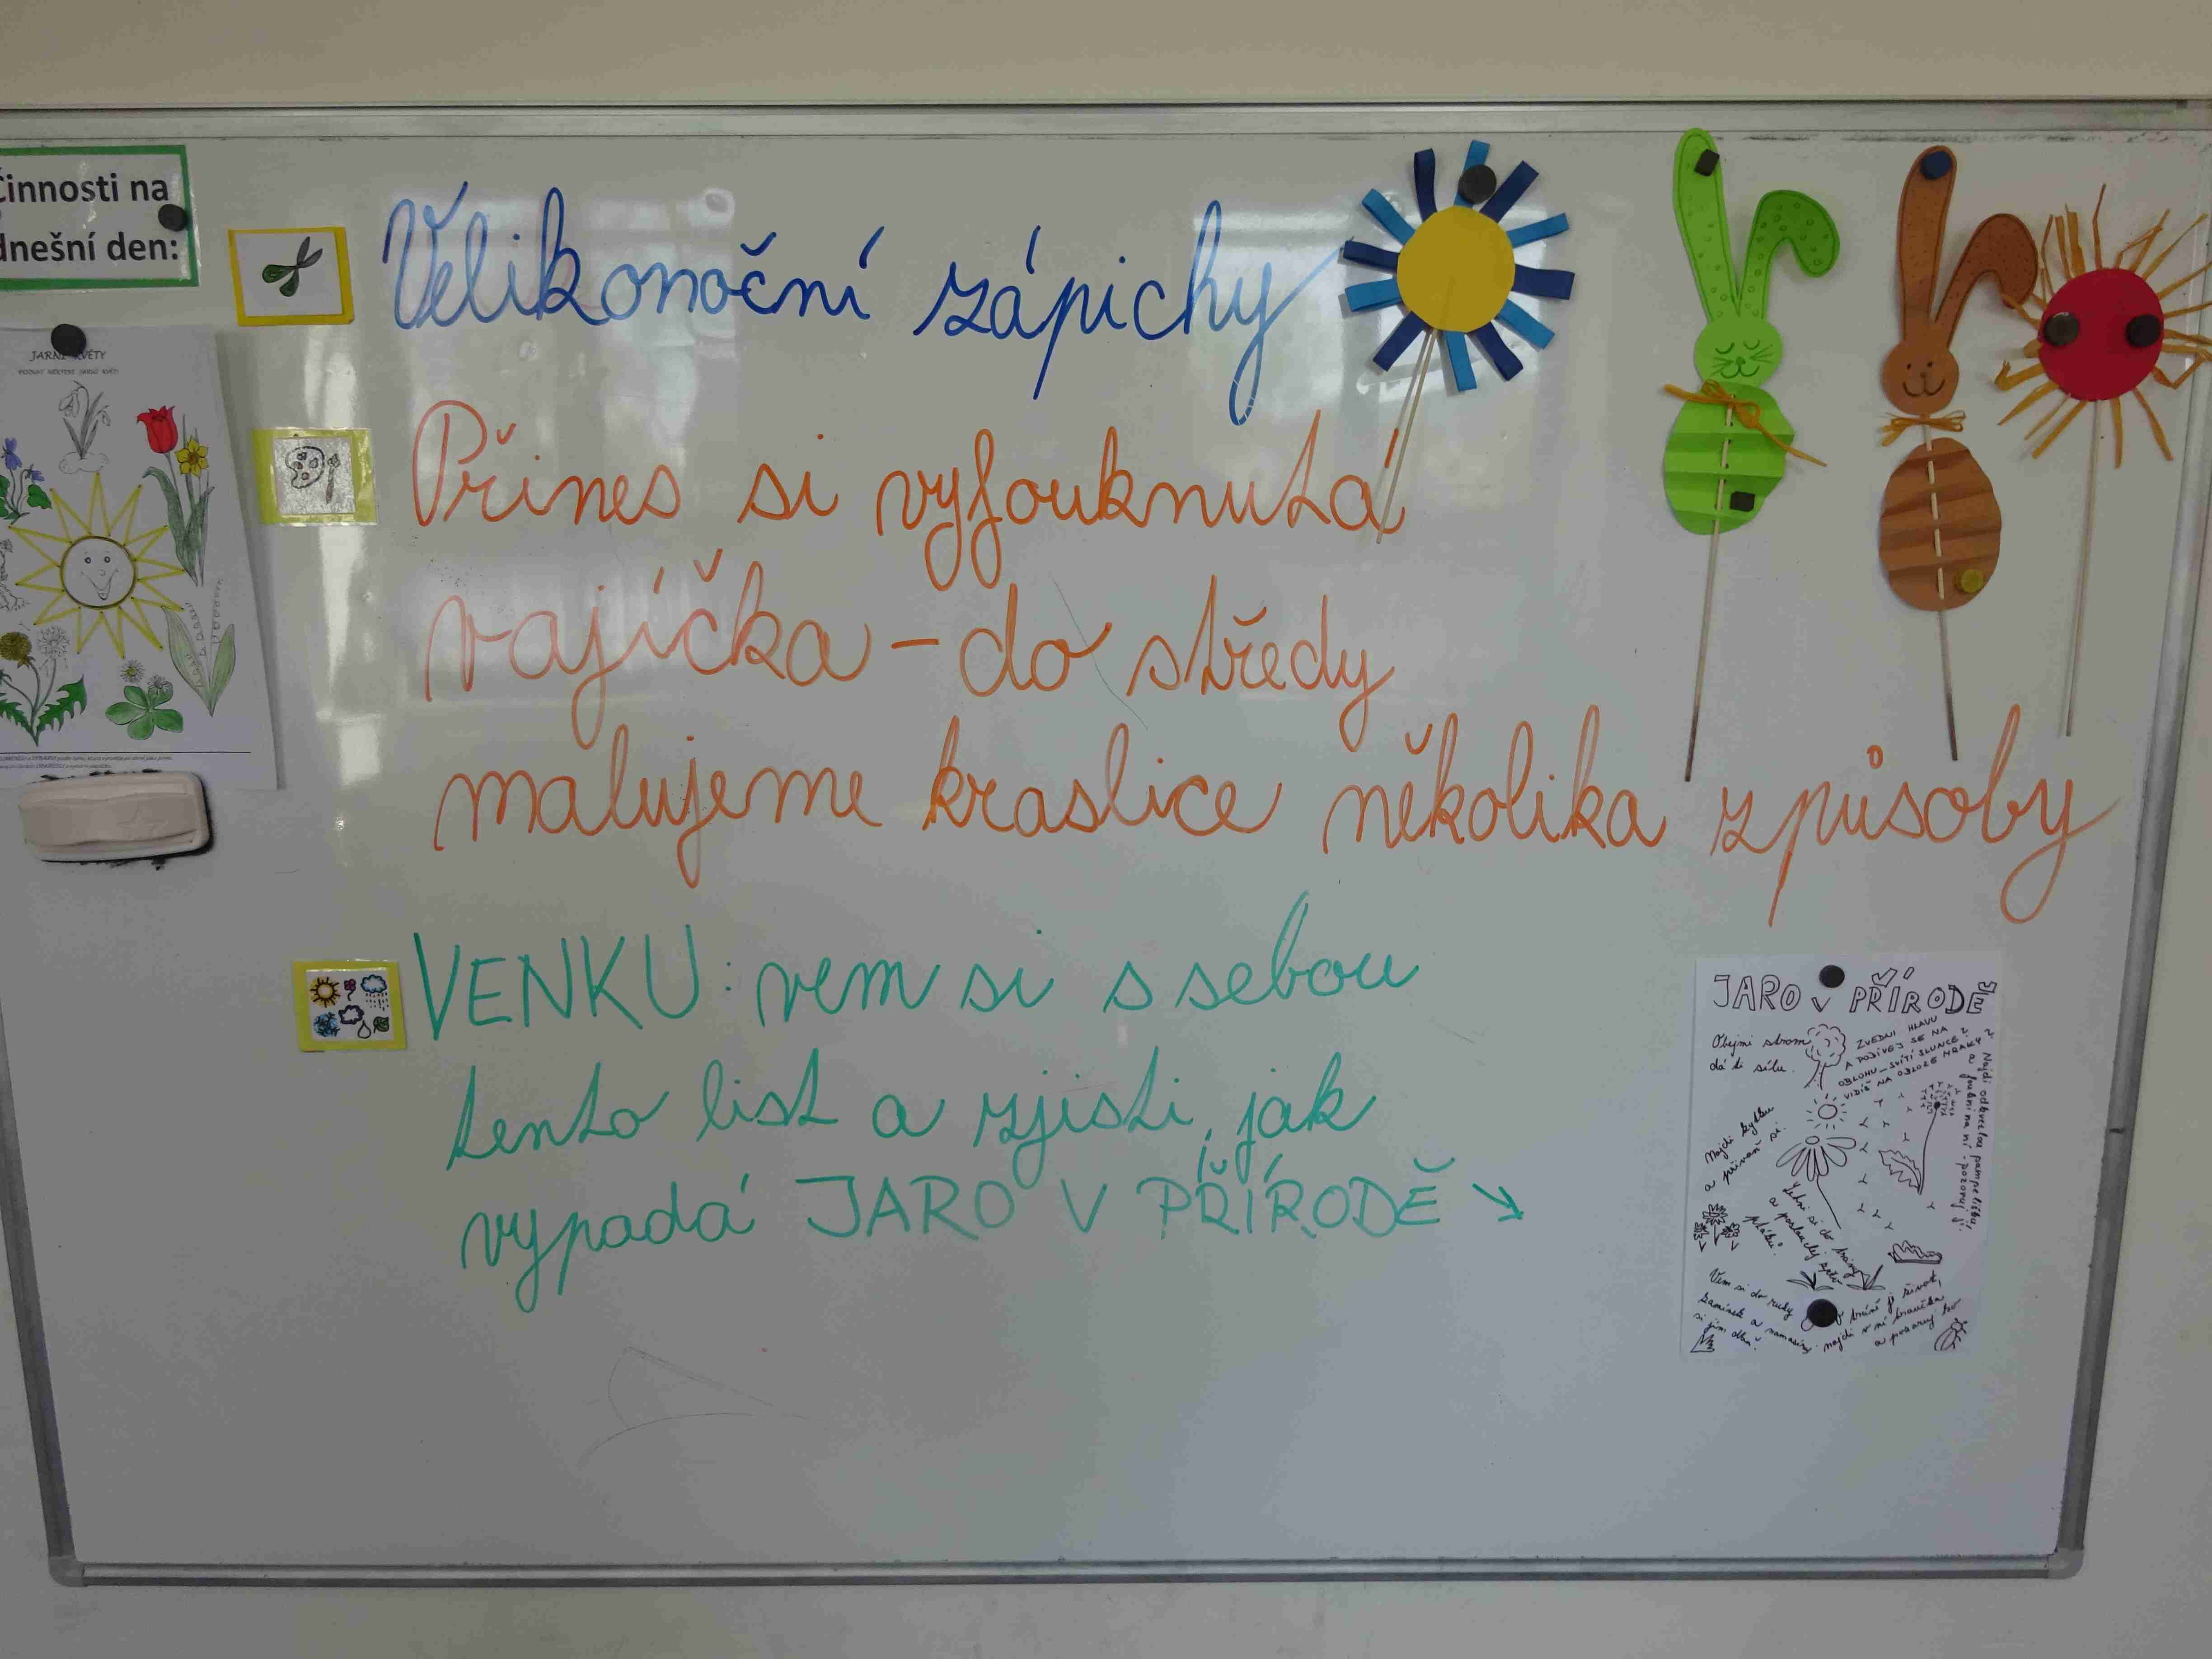 Činnosti na
dnešní den:
Velikonoční zápichy
Přines si vyfouknutá
vajíčka – do středy
malujeme kraslice několika způsoby
VENKU: vem si s sebou
tento list a zjisti, jak
vypadá JARO V PŘÍRODĚ →
JARNÍ KVĚTY
JARO V PŘÍRODĚ
Obejmi strom
dá ti sílu.
ZVEDNI HLAVU
A PODÍVEJ SE NA
OBLOHU – SVÍTÍ SLUNCE?
VIDÍŠ NA OBLOZE MRAKY?
Najdi odkvetlou pampelišku
a foukni na ni - pozoruj ji.
Najdi kytku
a přivoň si.
Lehni si do trávy
a poslouchej zpěv
ptáků.
Vem si do ruky
kamínek a
si jím dlaň.
V trávě je život,
najdi v ní broučka
a pozoruj ho